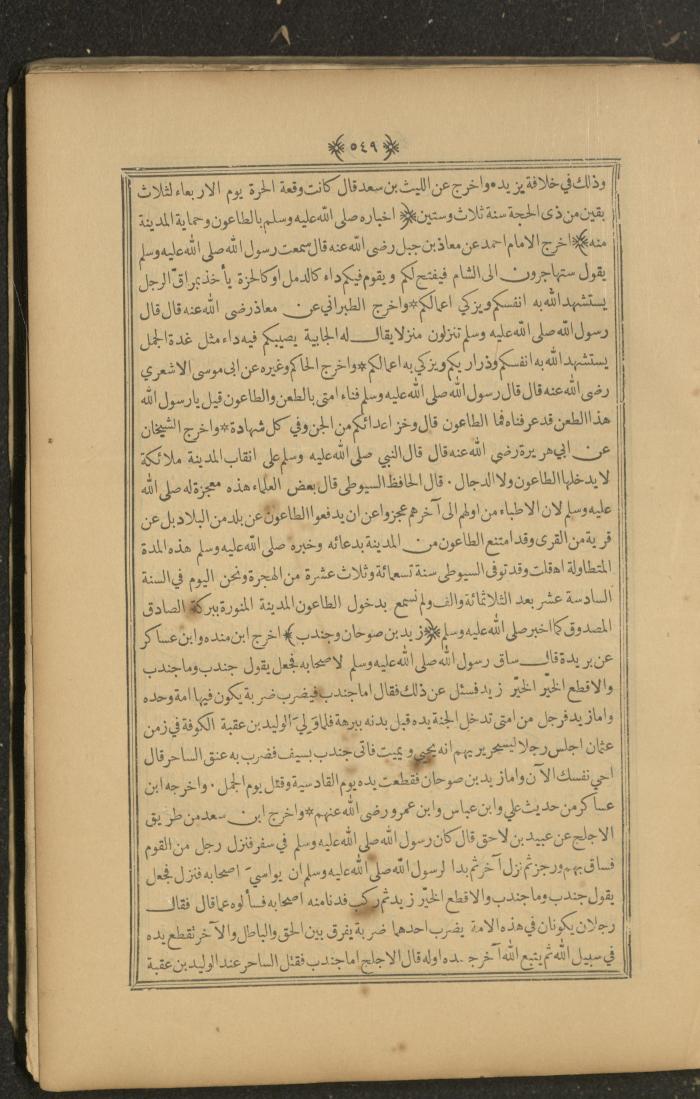 ﴿ ٥٤٩ ﴾
وذلك في خلافة يزيد * واخرج عن الليث بن سعد قال كانت وقعة الحرة يوم الاربعاء لثلاث
بقين من ذى الحجة سنة ثلاث وستين ﴿ اخباره صلى الله عليه وسلم بالطاعون وحماية المدينة
منه ﴾ اخرج الامام احمد عن معاذ بن جبل رضى الله عنه قال سمعت رسول الله صلى الله عليه وسلم
يقول ستهاجرون الى الشام فيفتح لكم ويقوم فيكم داء كالدمل او كالحزة يأخذ بمراقّ الرجل
يستشهد الله به انفسكم ويزكي اعمالكم * واخرج الطبراني عن معاذ رضى الله عنه قال قال
رسول الله صلى الله عليه وسلم تنزلون منزلا يقال له الجابية يصيبكم فيه داء مثل غدة الجمل
يستشهد الله به انفسكم وذراريكم ويزكي به اعمالكم * واخرج الحاكم وغيره عن ابى موسى الاشعري
رضى الله عنه قال قال رسول الله صلى الله عليه وسلم فناء امتى بالطعن والطاعون قيل يا رسول الله
هذا الطعن قد عرفناه فما الطاعون قال وخز اعدائكم من الجن وفي كل شهادة * واخرج الشيخان
عن ابي هريرة رضي الله عنه قال قال النبي صلى الله عليه وسلم على انقاب المدينة ملائكة
لا يدخلها الطاعون ولا الدجال . قال الحافظ السيوطى قال بعض العلماء هذه معجزة له صلى الله
عليه وسلم لان الاطباء من اولهم الى آخرهم عجزوا عن ان يدفعوا الطاعون عن بلد من البلاد بل عن
قرية من القرى وقد امتنع الطاعون من المدينة بدعائه وخبره صلى الله عليه وسلم هذه المدة
المتطاولة اهقلت وقد توفى السيوطى سنة تسعمائة وثلاث عشرة من الهجرة ونحن اليوم في السنة
السادسة عشر بعد الثلاثمائة والف ولم نسمع بدخول الطاعون المدينة المنورة ببركة الصادق
المصدوق كما اخبر صلى الله عليه وسلم ﴿ زيد بن صوحان وجندب ﴾ اخرج ابن منده وابن عساكر
عن بريدة قال ساق رسول الله صلى الله عليه وسلم لاصحابه فجعل يقول جندب وما جندب
والاقطع الخيّر الخيّر زيد فسئل عن ذلك فقال اما جندب فيضرب ضربة يكون فيها امة وحده
واما زيد فرجل من امتى تدخل الجنة يده قبل بدنه ببرهة فلما وَلِيَ الوليد بن عقبة الكوفة في زمن
عثمان اجلس رجلا ليسحر يريهم انه يحيي ويميت فاتى جندب بسيف فضرب به عنق الساحر قال
احي نفسك الآن واما زيد بن صوحان فقطعت يده يوم القادسية وقتل يوم الجمل . واخرجه ابن
عساكر من حديث علي وابن عباس وابن عمرو رضى الله عنهم * واخرج ابن سعد من طريق
الاجلح عن عبيد بن لاحق قال كان رسول الله صلى الله عليه وسلم في سفر فنزل رجل من القوم
فساق بهم ورجز ثم نزل آخر ثم بدا لرسول الله صلى الله عليه وسلم ان يواسيَ اصحابه فنزل فجعل
يقول جندب وما جندب والاقطع الخيّر زيد ثم ركب فدنا منه اصحابه فسألوه عما قال فقال
رجلان يكونان في هذه الامة يضرب احدهما ضربة يفرق بين الحق والباطل والآخر تقطع يده
في سبيل الله ثم يتبع الله آخر جسده اوله قال الاجلح اما جندب فقتل الساحر عند الوليد بن عقبة